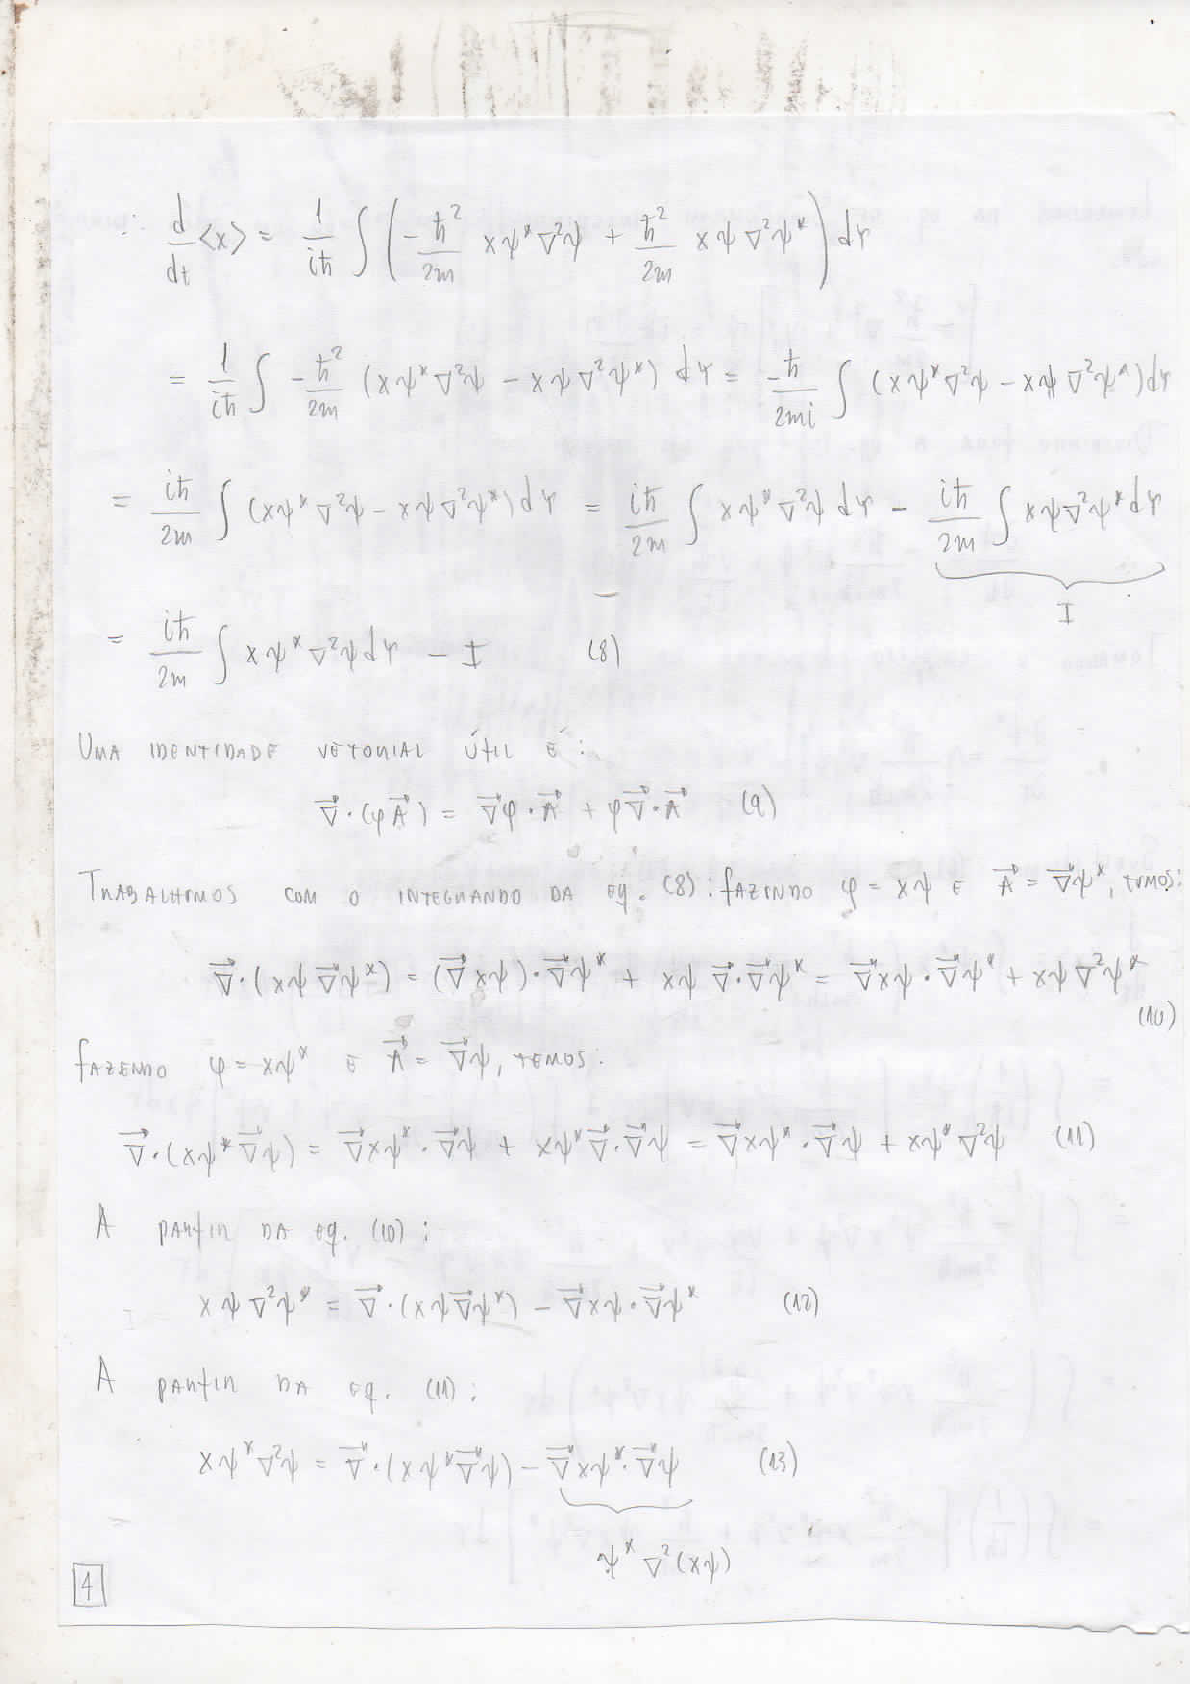 ∴ d/dt <x> = 1/iħ ∫ ( -ħ²/2m xψ*∇²ψ + ħ²/2m xψ∇²ψ* ) dτ
= 1/iħ ∫ -ħ²/2m (xψ*∇²ψ - xψ∇²ψ*) dτ = -ħ/2mi ∫ (xψ*∇²ψ - xψ∇²ψ*) dτ
= iħ/2m ∫ (xψ*∇²ψ - xψ∇²ψ*) dτ = iħ/2m ∫ xψ*∇²ψ dτ - iħ/2m ∫ xψ∇²ψ* dτ
I
= iħ/2m ∫ xψ*∇²ψ dτ - I (8)
UMA IDENTIDADE VETORIAL ÚTIL É:
∇⃗·(φA⃗) = ∇⃗φ·A⃗ + φ∇⃗·A⃗ (9)
TRABALHEMOS COM O INTEGRANDO DA EQ. (8): FAZENDO φ = xψ E A⃗ = ∇⃗ψ*, TEMOS:
∇⃗·(xψ∇⃗ψ*) = (∇⃗xψ)·∇⃗ψ* + xψ∇⃗·∇⃗ψ* = ∇⃗xψ·∇⃗ψ* + xψ∇²ψ*
(10)
FAZENDO φ = xψ* E A⃗ = ∇⃗ψ, TEMOS:
∇⃗·(xψ*∇⃗ψ) = ∇⃗xψ*·∇⃗ψ + xψ*∇⃗·∇⃗ψ = ∇⃗xψ*·∇⃗ψ + xψ*∇²ψ (11)
A PARTIR DA EQ. (10):
xψ∇²ψ* = ∇⃗·(xψ∇⃗ψ*) - ∇⃗xψ·∇⃗ψ* (12)
A PARTIR DA EQ. (11):
xψ*∇²ψ = ∇⃗·(xψ*∇⃗ψ) - ∇⃗xψ*·∇⃗ψ (13)
ψ*∇²(xψ)
4